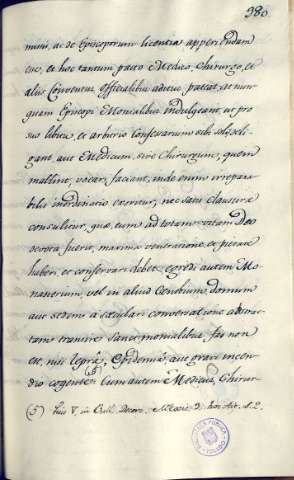 380
minis, ac de Episcoporum licentia apperiendam
esse, et hoc tantum pacto Medico, Chirurgo, et
aliis Conventus Officialibus aditus pateat, at nun-
quam Episcopi Monialibus indulgeant, ut pror-
sus libitu, et arbitrio Confessarium sibi soli seli-
gant, aut Medicum, sive Chirurgum, quem
mallint, vocari faciant, inde enim irrepara-
bilis inordinatio exoritur, nec sane Clausurae
consulitur, quae, cum ad totam vitam Deo
devota fuerit, maxima veneratione, et pietate
haberi, et conservari debet; egredi autem Mo-
nasterium, vel in aliud Cenobium, domum
aut sedem a saeculari conversatione abstrac-
tam transire Sanctimonialibus fas non
est, nisi lepra, Epidemia, aut gravi incen-
dio cogente (5) Cum autem Medicus, Chirur-
(5) Pius V. in Bull. Decori,